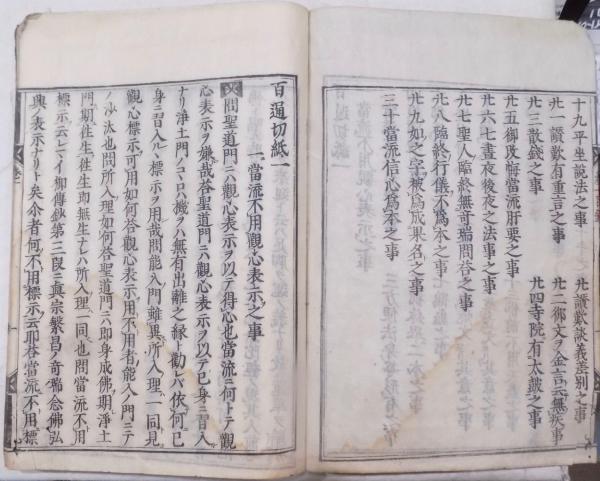 十九平坐說法之事
廿一讚歎有重言之事
廿三散錢之事
廿五御改悔當流肝要之事
廿六七晝夜後夜之法事之事
廿七聖人臨終無奇瑞問答之事
廿八臨終行儀不為本之事
廿九如之字被為成果名之事
三十當流信心為本之事
廿讚歎談義差別之事
廿二御文ヲ金言云無疾事
廿四寺院有太皷之事
百通切紙
一當流不用觀心表示之事
問聖道門ニハ觀心表示ヲ以テ得心也當流ニ何トテ觀
心表示ヲ嫌哉答聖道門ニハ觀心表示ヲ以テ已身ニ習入
ナリ淨土門ノコヽロハ機ヲハ無有出離之緣ト勸レハ依何已
身ニ習入ルヽ標示ヲ用哉問能入門雖異所入理一同見
觀心標示可用如何答觀心表示用不用者能入門ニテ
ノ沙汰也問所入理如何答聖道門ニハ即身成佛期淨土
門期往生往生即無生ナレハ所入理一同也問當流不用
標示云ヘトモイ御傳鈔第三段ニ真宗繁昌ノ奇瑞念佛弘
興ノ表示ナリト矣尒者何不用標示云耶答當流不用標